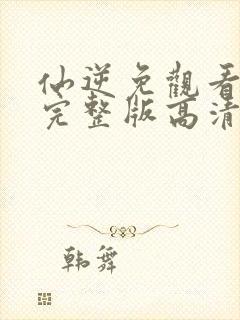 仙逆免觀看
完整版高清
韩舞